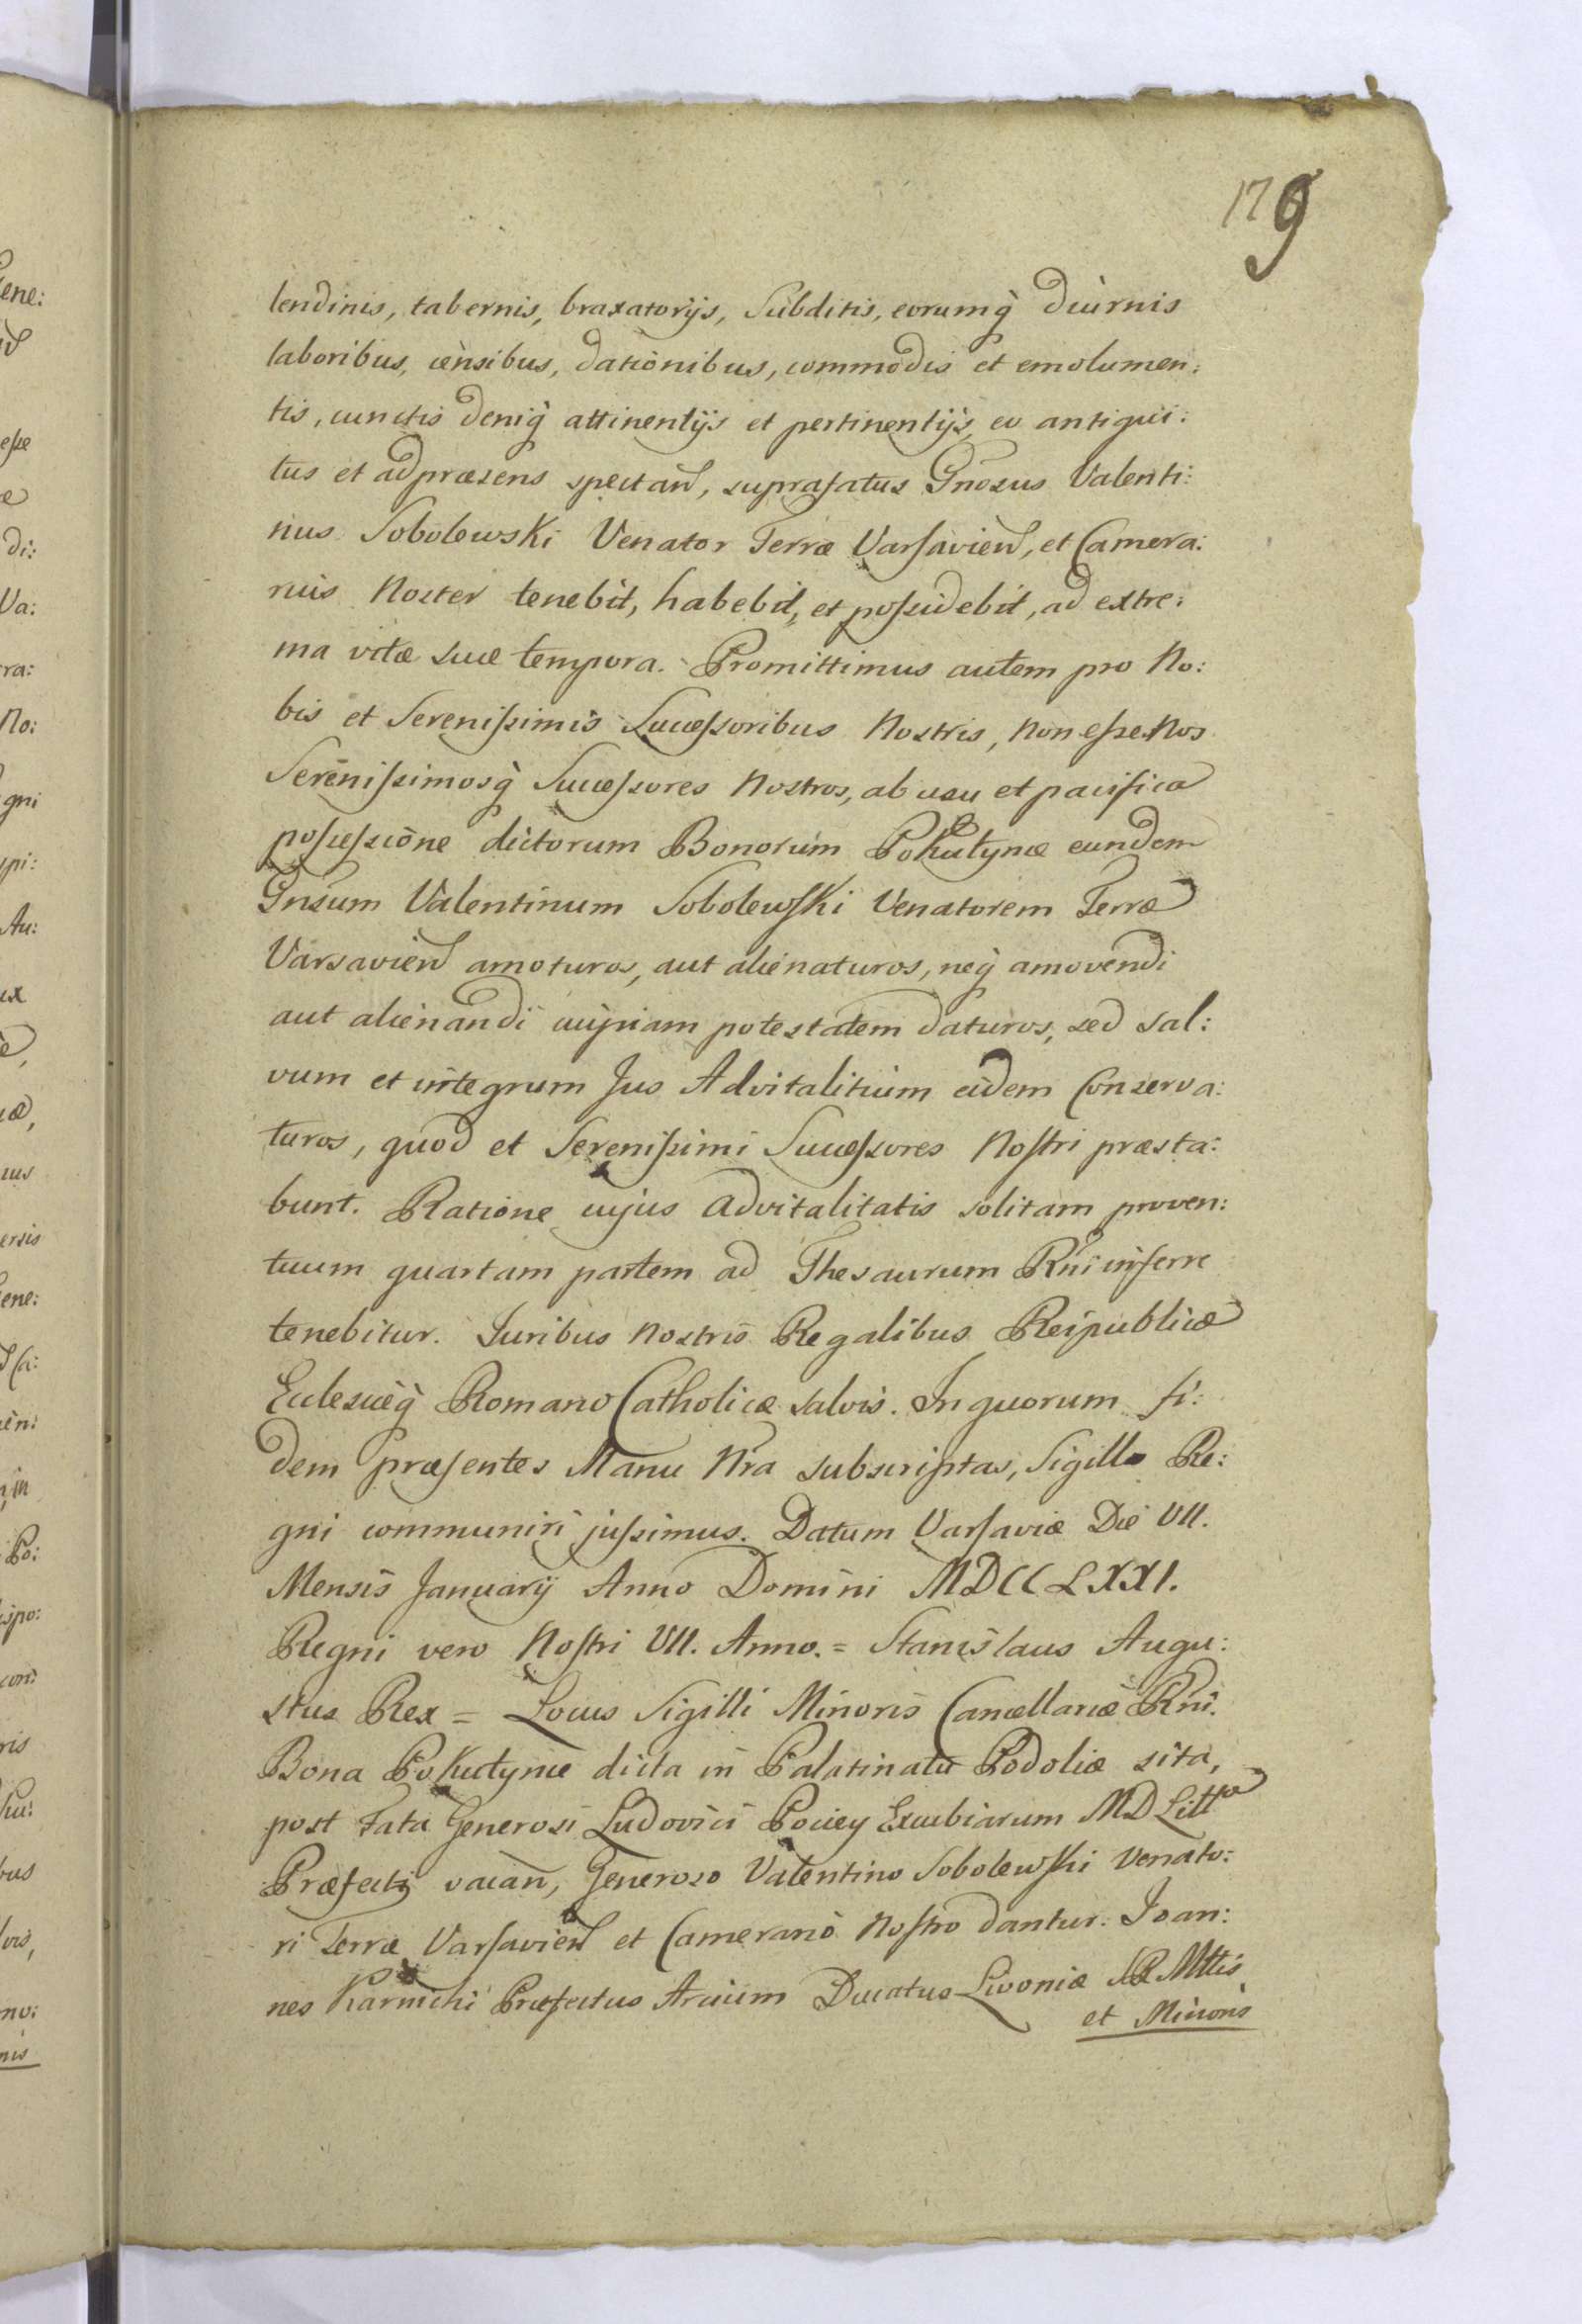 179
lendinis, tabernis, braxatorijs, Subditis, eorumq̀ diurnis
laboribus, censibus, dationibus, commodis et emolumen:
tis, cunctis deniq̀ attinentijs et pertinentijs, eo antiqui:
tus et ad præsens spectan̄, suprafatus Gnosus Valenti:
nus Sobolewski Venator Terræ Varsavien̄, et Camera:
rius Noster tenebit, habebit, et possidebit, ad extre:
ma vitæ suæ tempora. Promittimus autem pro No:
bis et Serenissimis Successoribus Nostris, non esse Nos
Serenissimosq̀ Successores Nostros, ab usu et pacifica
possessione dictorum Bonorum Pokutynce eundem
Gnsum Valentinum Sobolewski Venatorem Terræ
Varsavien̄ amoturos, aut alienaturos, neq̀ amovendi
aut alienandi cuipiam potestatem daturos, sed sal:
vum et integrum Jus Advitalitium eidem Conserva:
turos, quod et Serenissimi Successores Nostri præsta:
bunt. Ratione cujus advitalitatis solitam proven:
tuum quartam partem ad Thesaurum Rni inferre
tenebitur. Juribus Nostris Regalibus Reipublicæ
Eclesiæq̀ Romano Catholicæ salvis. In quorum fi:
dem præsentes Manu Nra subscriptas, Sigillo Re:
gni communiri jussimus. Datum Varsaviæ Die VII.
Mensis Januarij Anno Domini MDCCLXXI.
Regni vero Nostri VII. Anno. = Stanislaus Augu:
stus Rex = Locus Sigilli Minoris Cancellariæ Rni.
Bona Pokutynce dicta in Palatinatu Podoliæ sita,
post Fata Generosi Ludovici Pociey Excubiarum MD Litt͠æ
Præfecti vacan̄, Generoso Valentino Sobolewski Venato:
ri Terræ Varsavien̄ et Camerario Nostro dantur: Joan:
nes Karnicki Præfectus Arcium Ducatus Livoniæ SR Mttis
et Minoris